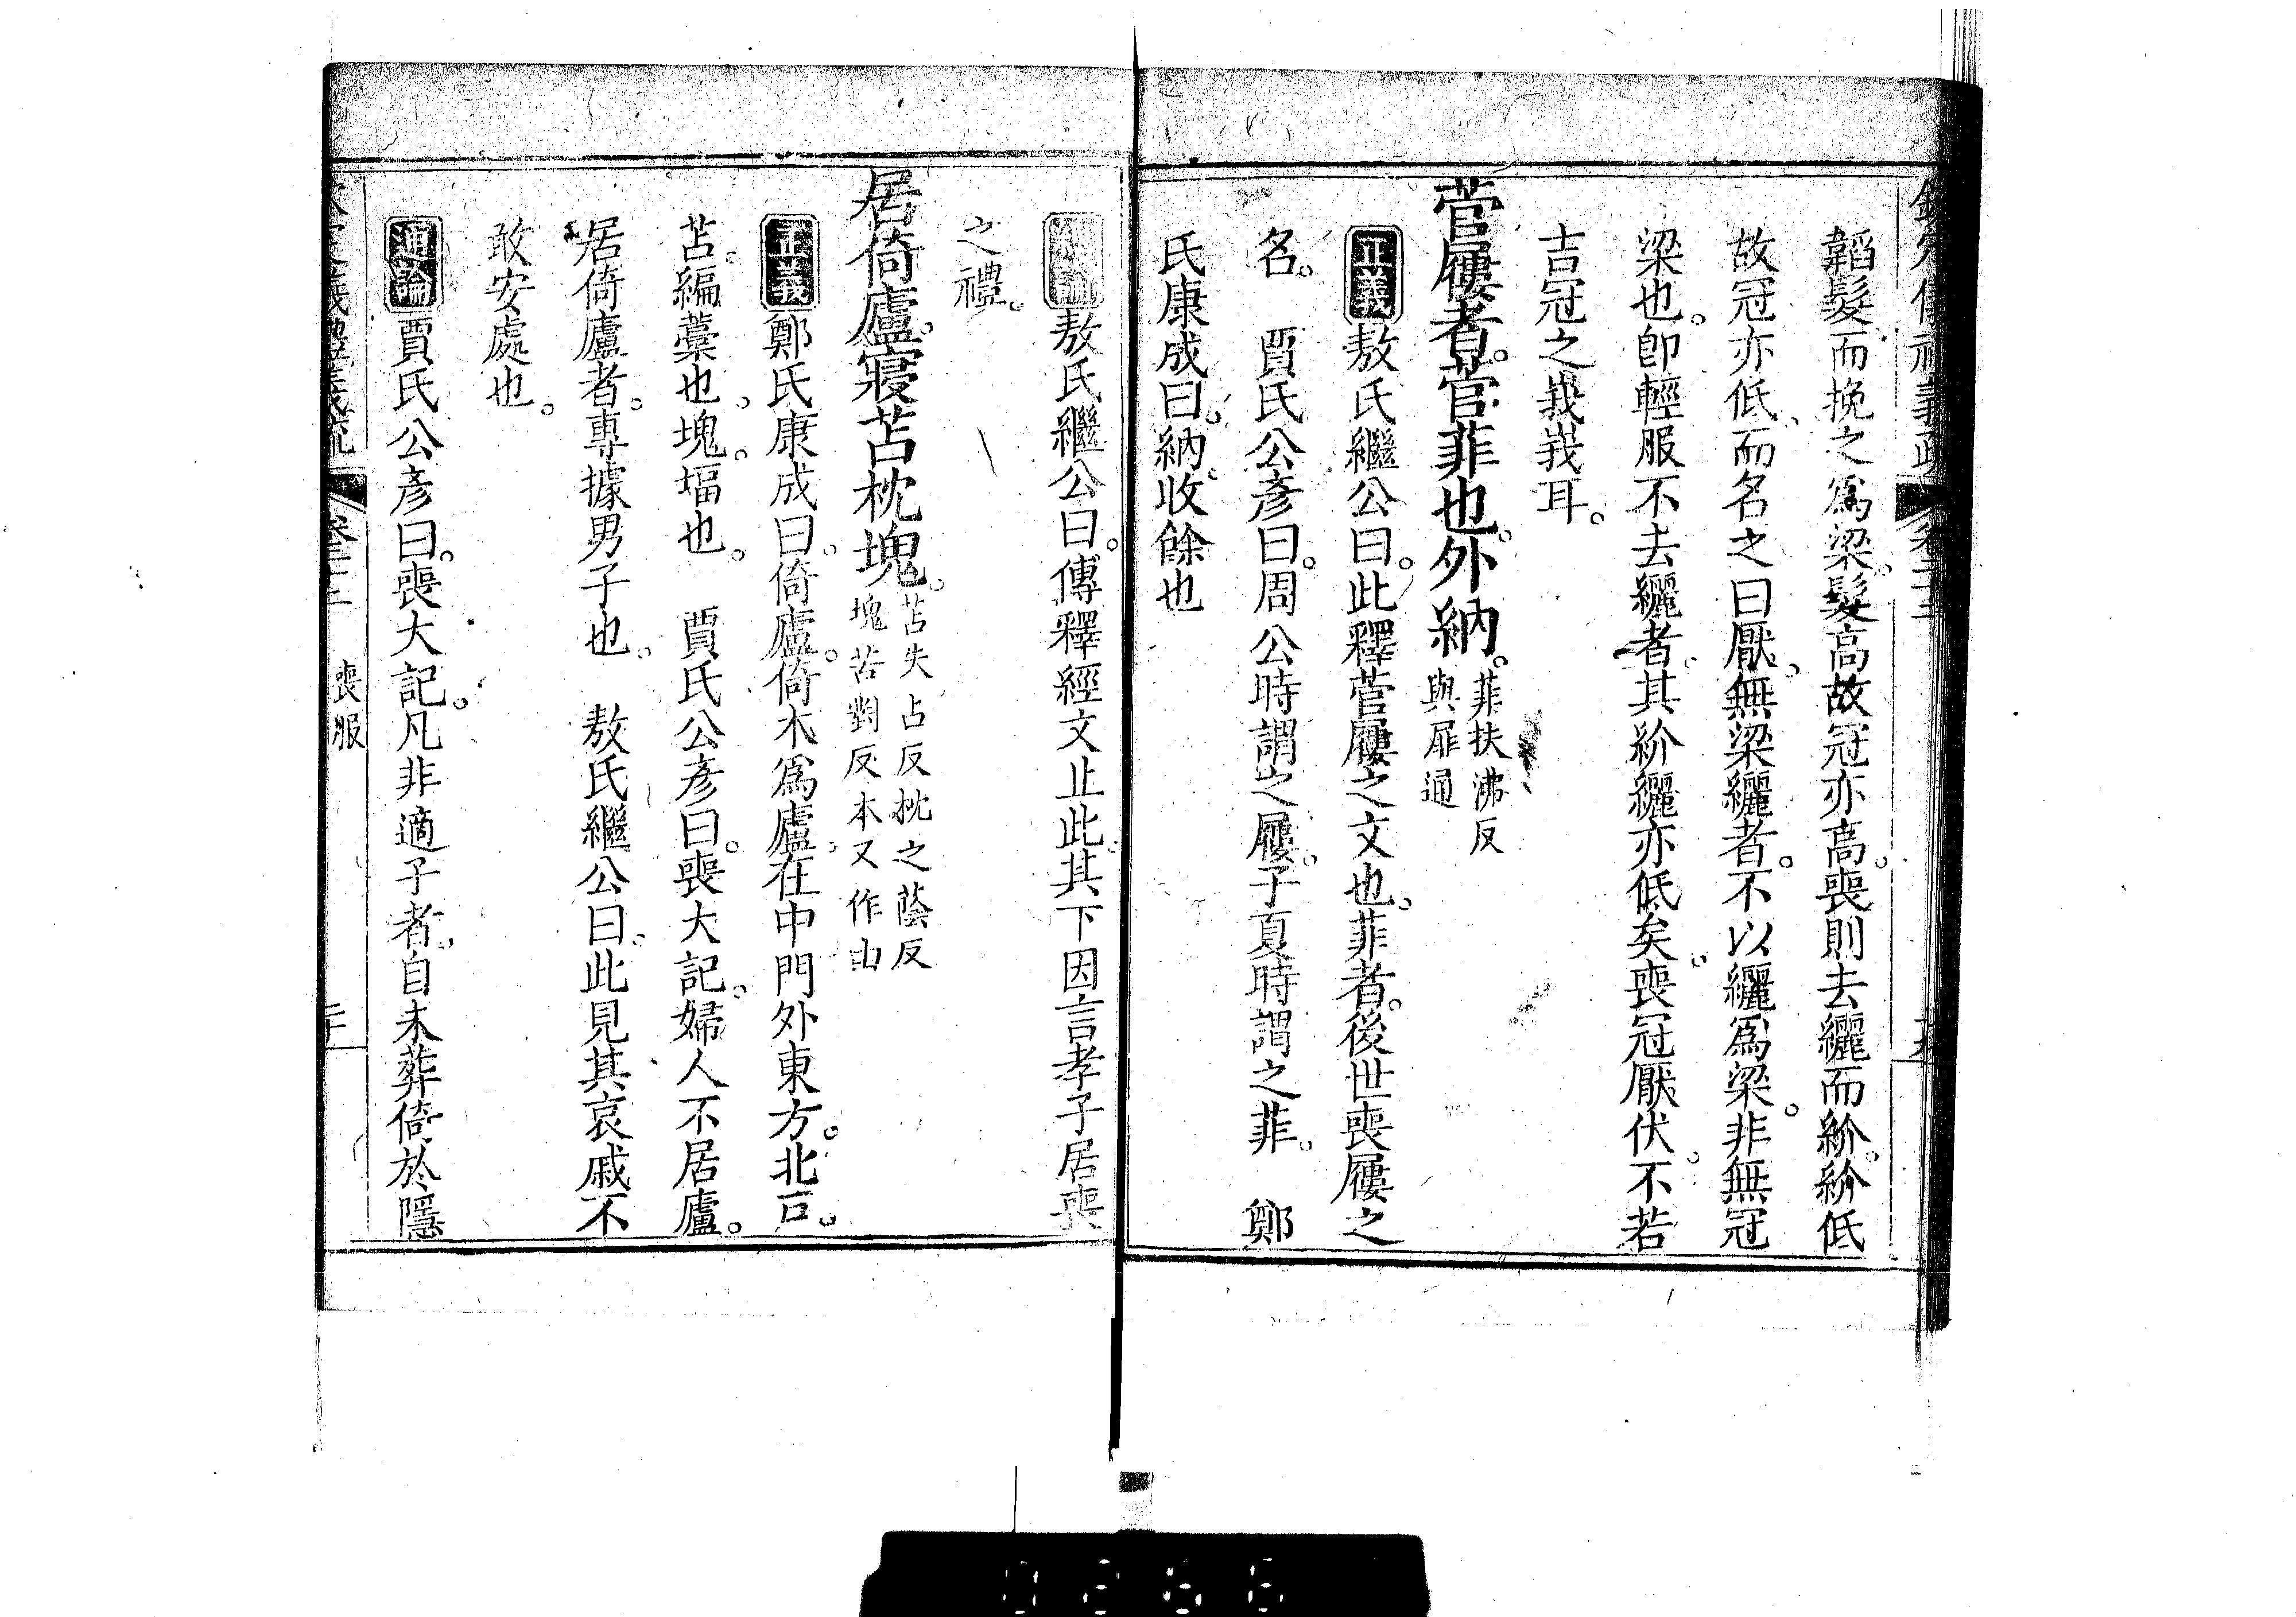 韜髮而挽之爲梁。髮高故冠亦高。喪則去纚而紒。紒低
故冠亦低、而名之曰厭。無梁纚者。不以纚爲梁。非無冠
梁也。卽輕服不去纚者。其紒纚亦低矣。喪冠厭伏。不若
吉冠之峩峩耳。
菅屨者。菅菲也。外納。菲扶沸反
與屝通
正義敖氏繼公曰。此釋菅屨之文也。菲者。後世喪屨之
名。 賈氏公彥曰。周公時謂之屨。子夏時謂之菲。 鄭
氏康成曰。納。收餘也
敖氏繼公曰。傳釋經文止此。其下因言孝子居喪
之禮。
居倚廬。寢苫枕塊。苫失占反枕之蔭反
塊苦對反本又作凷
正義鄭氏康成曰。倚廬。倚木爲廬。在中門外東方。北戶。
苫。編藁也。塊。堛也。 賈氏公彥曰。喪大記。婦人不居廬。
居倚廬者。專據男子也。 敖氏繼公曰。此見其哀戚不
敢安處也。
通論賈氏公彥曰。喪大記。凡非適子者。自未葬倚於隱
喪服